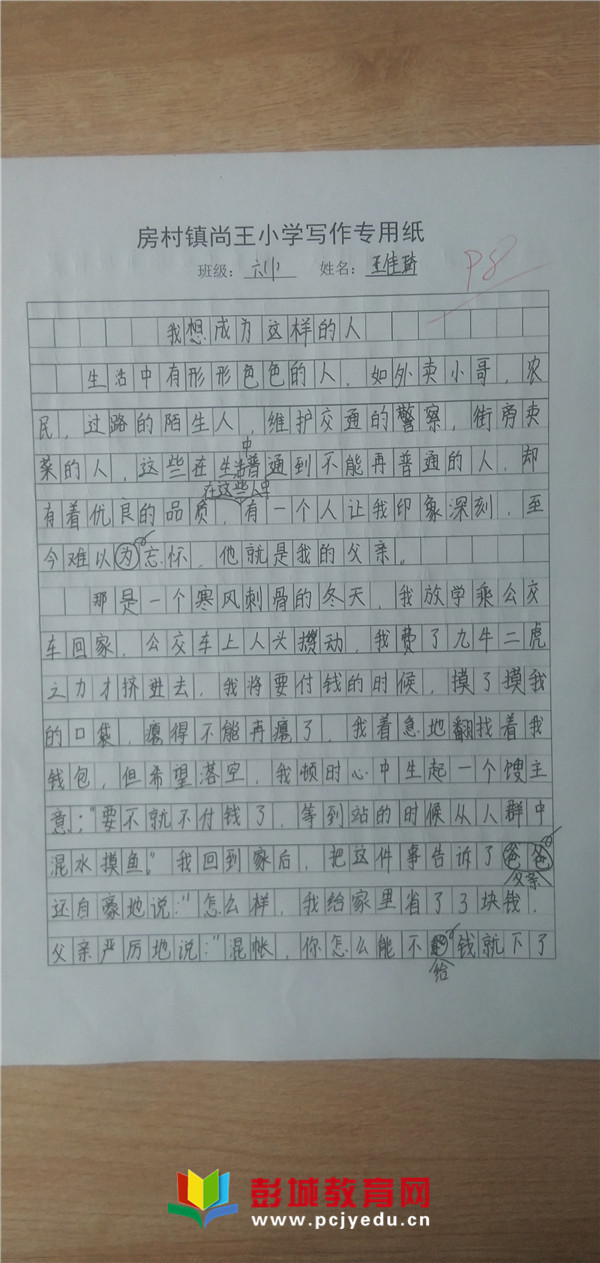 房村镇尚王小学写作专用纸
班级：六(1) 姓名：王佳琦
98
我想成为这样的人
生活中有形形色色的人，如外卖小哥，农
民，过路的陌生人，维护交通的警察，街旁卖
中
菜的人，这些在生活普通到不能再普通的人，却
在这些人中
有着优良的品质，有一个人让我印象深刻，至
今难以为忘怀，他就是我的父亲。
那是一个寒风刺骨的冬天，我放学乘公交
车回家，公交车上人头攒动，我费了九牛二虎
之力才挤进去，我将要付钱的时候，摸了摸我
的口袋，瘪得不能再瘪了，我着急地翻找着我
钱包，但希望落空，我顿时心中生起一个馊主
意："要不就不付钱了，等到站的时候从人群中
混水摸鱼。"我回到家后，把这件事告诉了爸爸
父亲
还自豪地说："怎么样，我给家里省了3块钱，
父亲严厉地说："混帐，你怎么能不钱就下了
给
彭城教育网
www.pcjyedu.cn